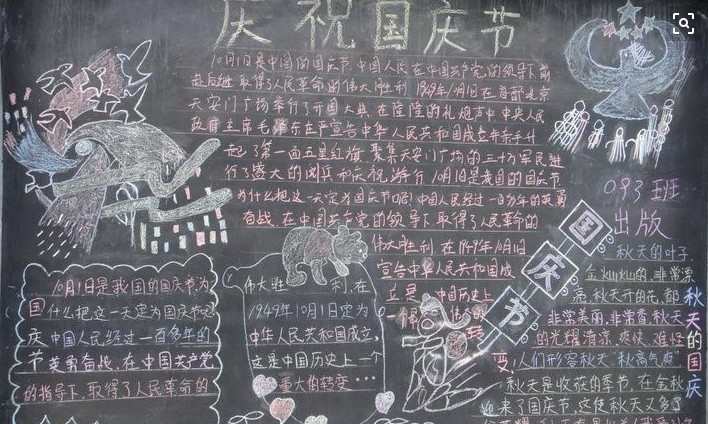 庆祝国庆节
10月1日是中国的国庆节,中国人民在中国共产党的领导下前
赴后继 取得了人民革命的伟大胜利 1949年10月1日在首都北京
天安门广场举行了开国大典,在隆隆的礼炮声中 中央人民
政府主席毛泽东庄严宣告中华人民共和国成立并亲手升
起了第一面五星红旗 聚集天安门广场的三十万军民进
行了盛大的阅兵和庆祝游行 10月1日是我国的国庆节
为什么把这一天定为国庆节呢 中国人民经过一百多年的英勇
奋战,在中国共产党的领导下 取得了人民革命的
伟大胜利 在1949年10月1日
宣告中华人民共和国成
立是 中国历史上
一个
093班
出版
国庆节
10月1日是我国的国庆节,为
什么把这一天定为国庆节呢
中国人民经过一百多年的
英勇奋战,在中国共产党
的指导下,取得了人民革命的
国庆节
伟大胜利,在
1949年10月1日定为
中华人民共和国成立,
这是中国历史上一个
重大的转变…
秋天的叶子
金 的,非常漂
亮,秋天开的花,都
非常美丽,非常香,秋天
的光耀清凉,爽快,难怪
人们形容秋天"秋高气爽"
秋天是收获的季节,在金秋
来了国庆节,这使秋天又多了
秋天的国庆